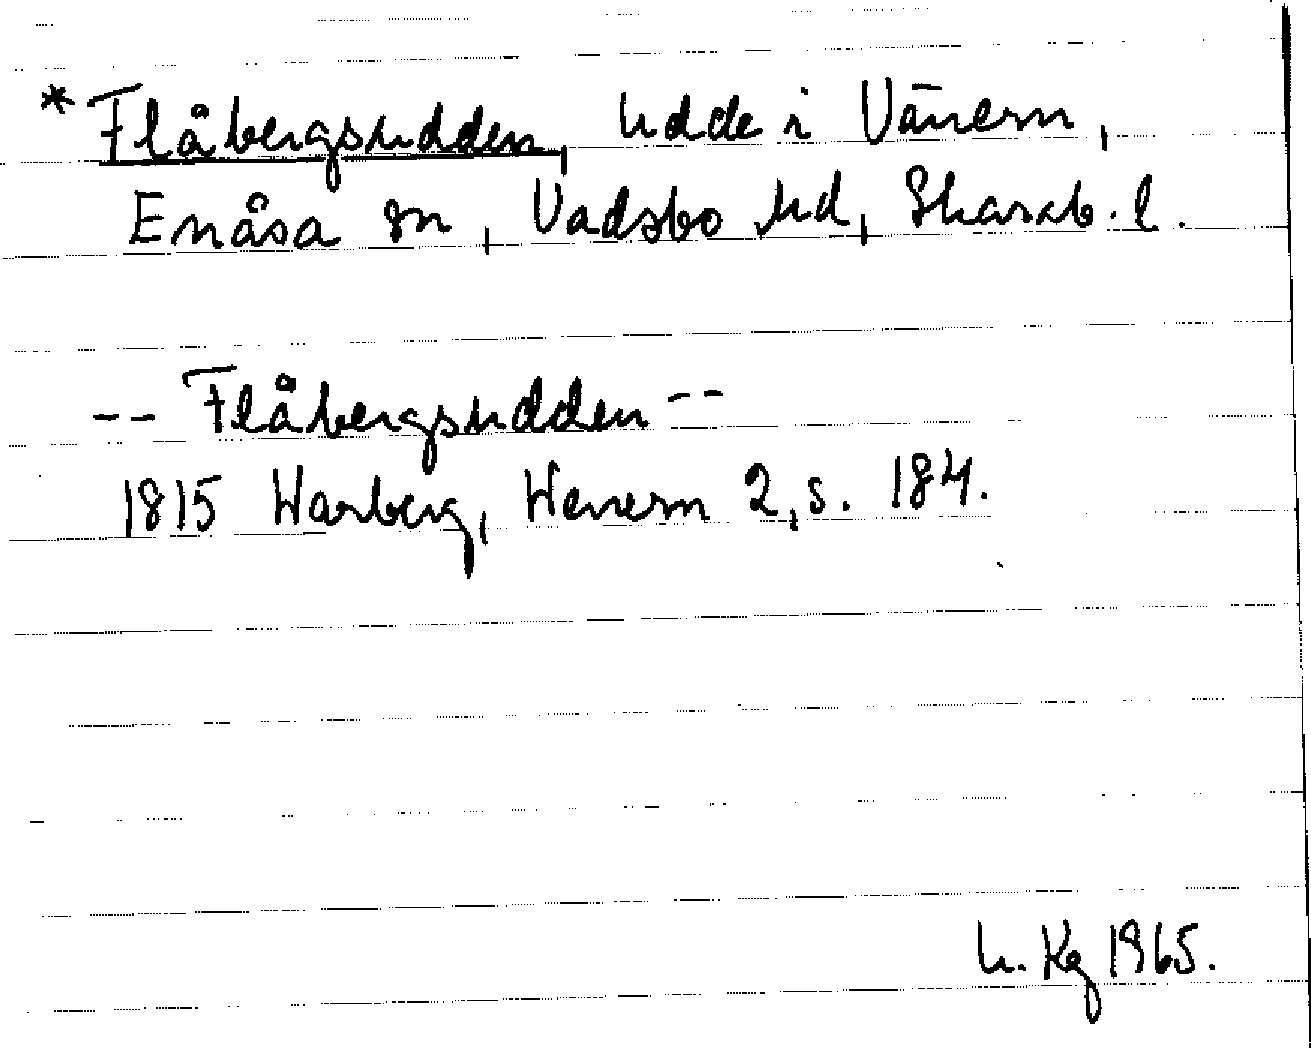 * Flåbergsudden, udde i Vänern,
Enåsa sn, Vadsbo hd, Skarab. l.
-- Flåbergsudden --
1815 Warberg, Wenern 2, s. 184.
h. Kg 1965.